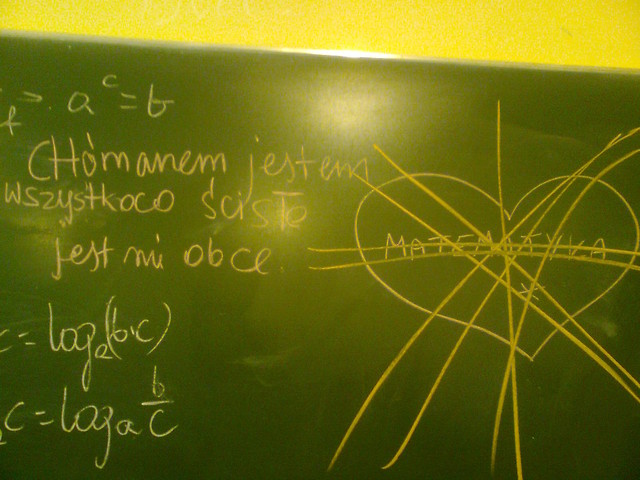 a^c = b
CHómanem jestem
wszystkoco ścisłe
jest mi obce.
MATEMATYKA
c = log_a(b·c)
c = log_a b/c